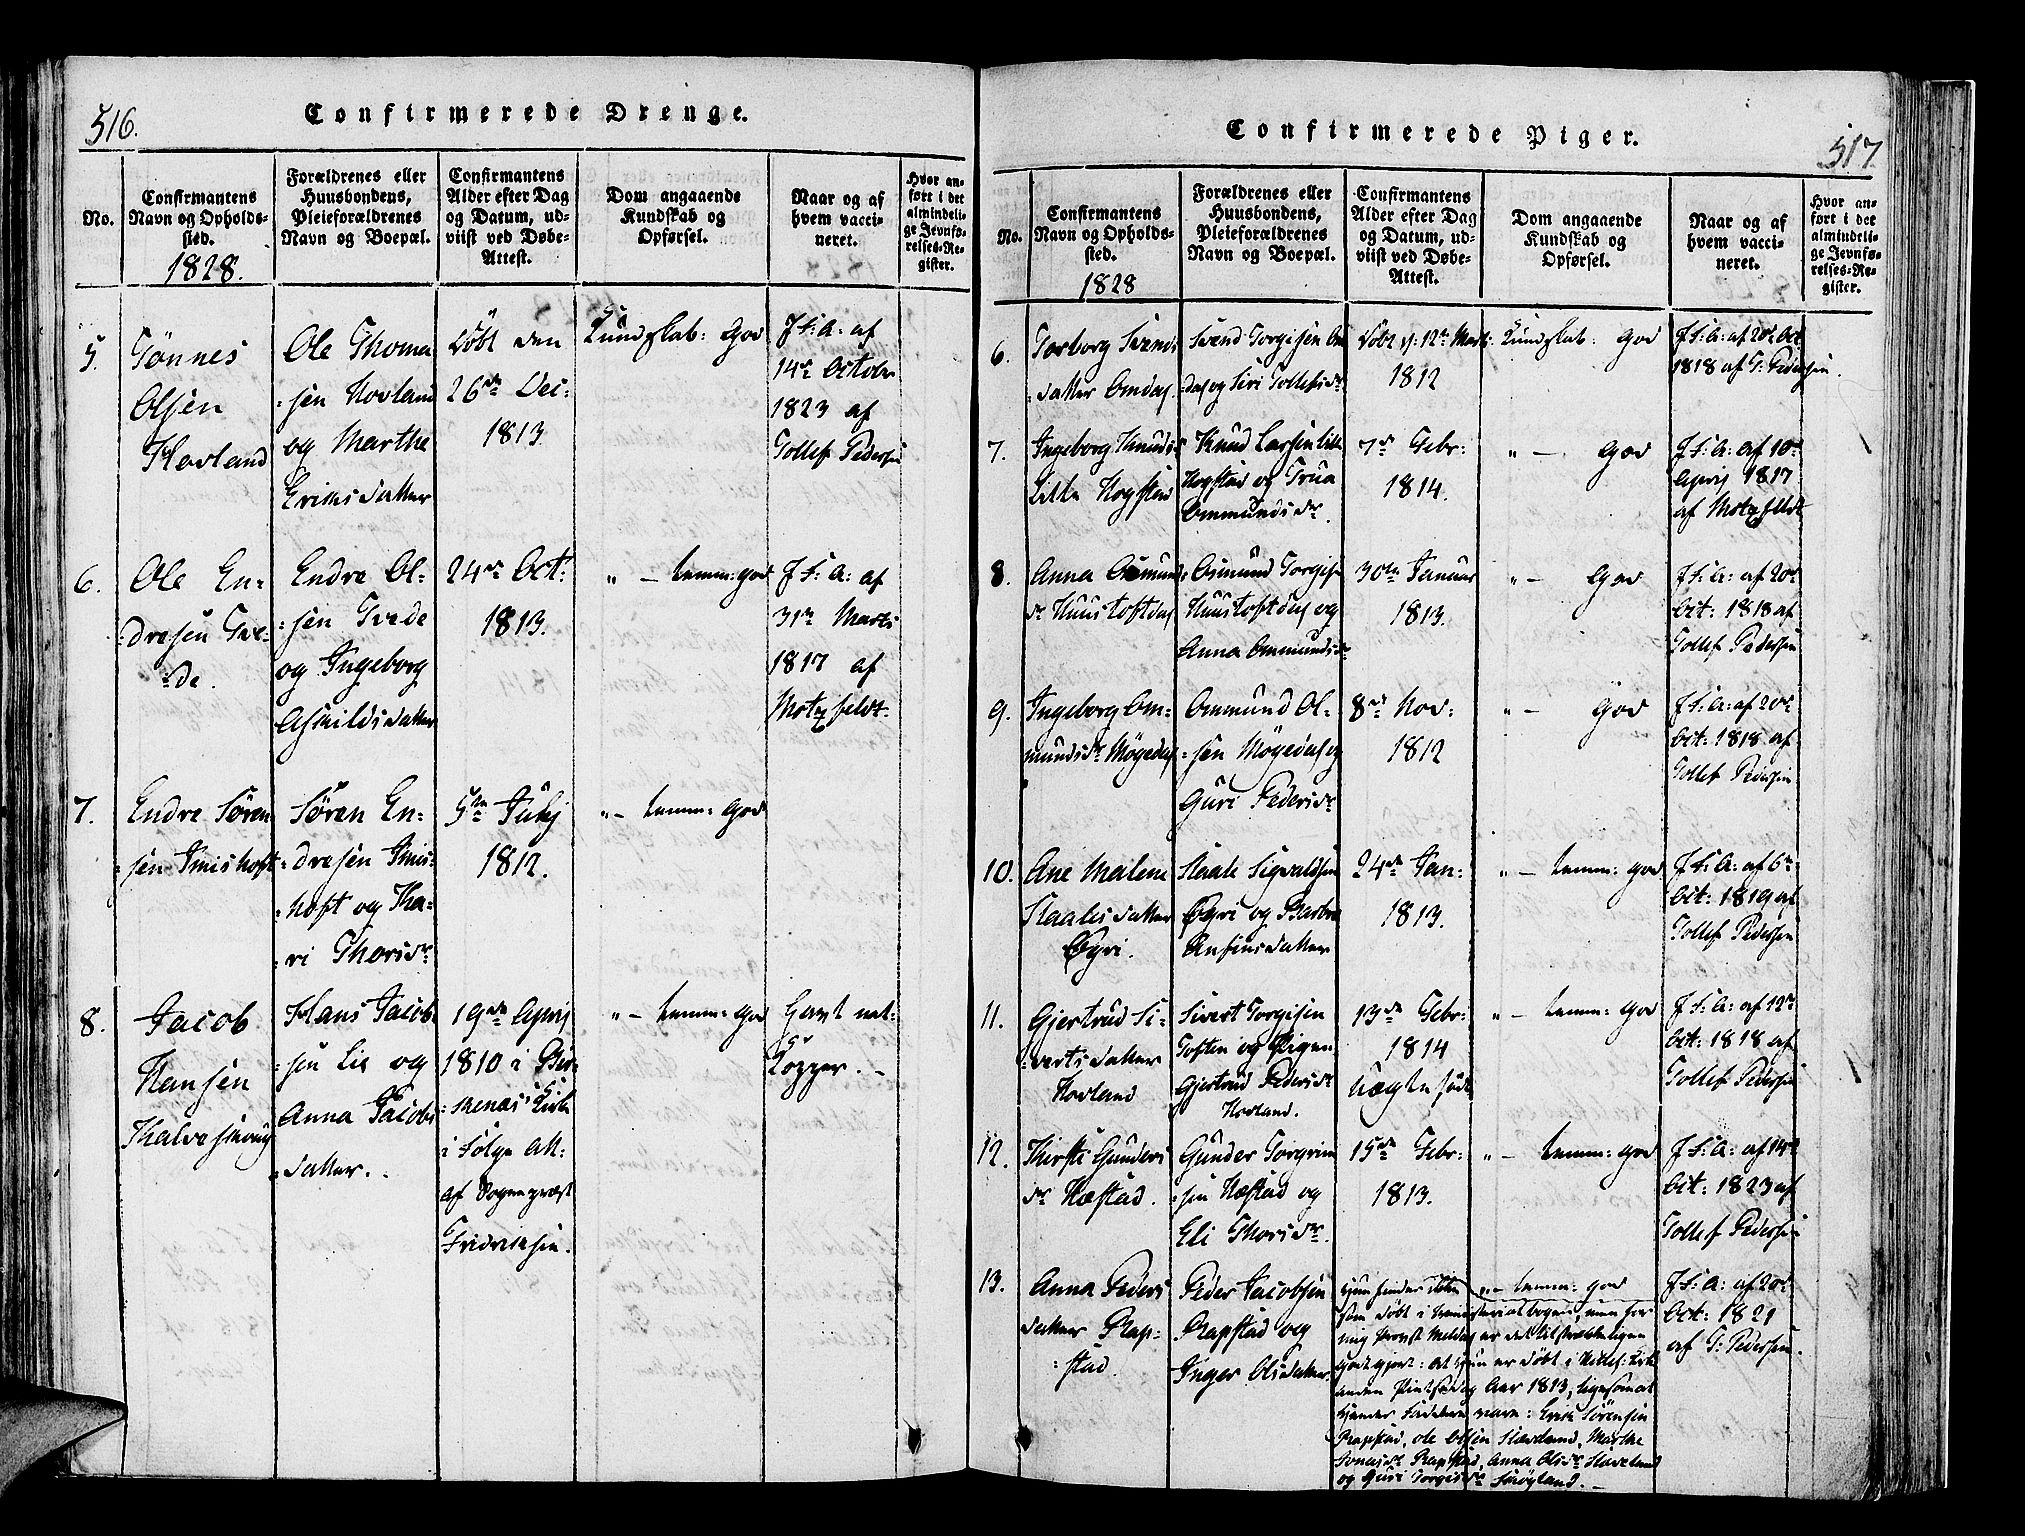 516.
Confirmerede Drenge.
No.
Confirmantens
Navn og Opholds-
sted.
1828.
Forældrenes eller
Huusbondens,
Pleieforældrenes
Navn og Boepæl.
Confirmantens
Alder efter Dag
og Datum, ud-
viist ved Døbe-
Attest.
Dom angaaende
Kundskab og
Opførsel.
Naar og af
hvem vacci-
neret.
Hvor an-
ført i det
almindeli-
ge Jevnfø-
relses-Re-
gister.
5.
Tønnes
Olsen
Hovland
Ole Thoma
sen Hovland
og Marthe
Eriksdatter
Døbt den
26de Dec:
1813
Kundskab: god
J F: A: af
14de Octobr
1823 af
Tollef Pedersen
6.
Ole En-
dresen Tve-
de.
Endre Ol-
sen Tvede
og Ingeborg
Asvildsdatter
24de Oct:
1813.
" — temm: god
J F: A: af
31te Marts
1817 af
Motzfeldt.
7.
Endre Søren
Søren En-
dresen
og Tha-
ri Thorisdr
5te Julij
1812.
" — temm: god
8.
Jacob
Hansen
Hans Jacob
sen Lie og
Anna Jacobs
datter.
19de April
1810 i
i Følge Att:
af Sogneprest
Fridrichsen.
" — temm: god
Havt nat:
Kopper. —
517
Confirmerede Piger.
No.
Confirmantens
Navn og Opholds-
sted.
1828
Forældrenes eller
Huusbondens,
Pleieforældrenes
Navn og Boepæl.
Confirmantens
Alder efter Dag
og Datum, ud-
viist ved Døbe-
Attest.
Dom angaaende
Kundskab og
Opførsel.
Naar og af
hvem vacci-
neret.
Hvor an-
ført i det
almindeli-
ge Jevnfø-
relses-Re-
gister.
6.
Torborg Svends
datter Omdal.
Svend Torgisen Om
dal og Siri Tollefsdr
Døbt d: 12te Mart:
1812
Kundskab: god
J F: A: af 20de Oct
1818 af T: Pedersen.
7.
Ingeborg Knuds
Litle Hogstad
Knud Larsen Litle
Hogstad og Trua
Ommundsdr.
7de Febr:
1814.
" — god
J F: A: af 10de
April 1817
af Motzfeldt
8.
Anna Osmund
dr Huustoftdal
Osmund Torgise
Huustoftdal og
Anna Ommundsdr
30te Januar
1813.
" — god
J F: A: af 20de
Oct: 1818 af
Tollef Pedersen
9.
Ingeborg Om-
mundsdr Møgedal
Ommund Ol-
sen Møgedal og
Guri Pedersdr
8de Nov:
1812
" — god
J F: A: af 20de
Oct: 1818 af
Tollef Pedersen
10.
Ane Malene
Staalesdatter
Øyri.
Staale Sigvaldsen
Øyri og Barbra
Ansteensdatter
24de Jan-
1813.
" — temm: god
J F: A: af 6te
Oct: 1819 af
Tollef Pedersen
11.
Gjertrud Si-
vertsdatter
Hovland
Sivert Torgisen
Toften og Pigen
Gjertrud Pedersdr
Hovland.
13de Febr:
1814
Uægte født
" — temm: god
J F: A: af 12te
Oct: 1818 af
Tollef Pedersen
12.
Kirsti Gunders
dr Hæstad.
Gunder Torgrim
sen Hæstad og
Eli Thorisdr.
15de Febr:
1813.
" — temm: god
J F: A: af 14de
Oct: 1823 af
Tollef Pedersen
13.
Anna Peders
datter Rap-
stad.
Peder Jacobsen
Rapstad og
Inger Olsdatter
" — temm: god
Hun findes ikke
som døbt i ministerialbogen, men for
mig Provst Meldal er det tilstrækkeligen
godtgjort: at hun er døbt i Kirke
anden Pintsedag Aar 1813, ligesom at
hendes Faddere vare: Erik Sørensen
Rapstad, Ole Olsen Skaveland, Marthe
Jonasdr Rapstad, Anna Olsdr Skaveland
og Guri Torgisdr Skøyland. —
J F: A: af 20de
Oct: 1821
af T: Pedersen.